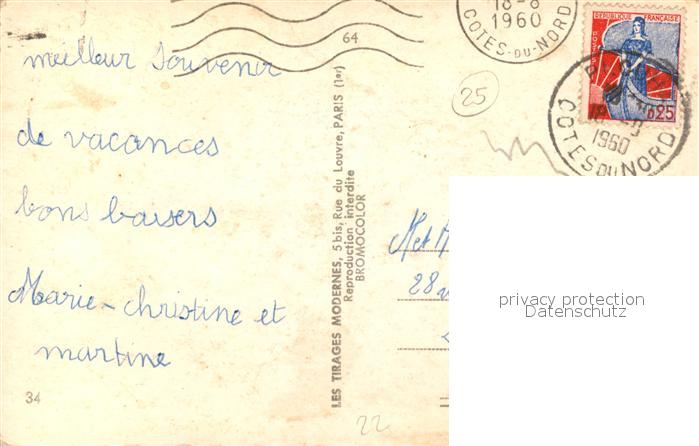 18-8
1960
COTES-DU-NORD
REPUBLIQUE FRANÇAISE
0,25
1960
COTES DU NORD
64
25
meilleur souvenir
de vacances
bons baisers
Marie-christine et
martine
LES TIRAGES MODERNES, 5 bis, Rue du Louvre, PARIS (1er)
Reproduction interdite
BROMOCOLOR
28
privacy protection
Datenschutz
34
22